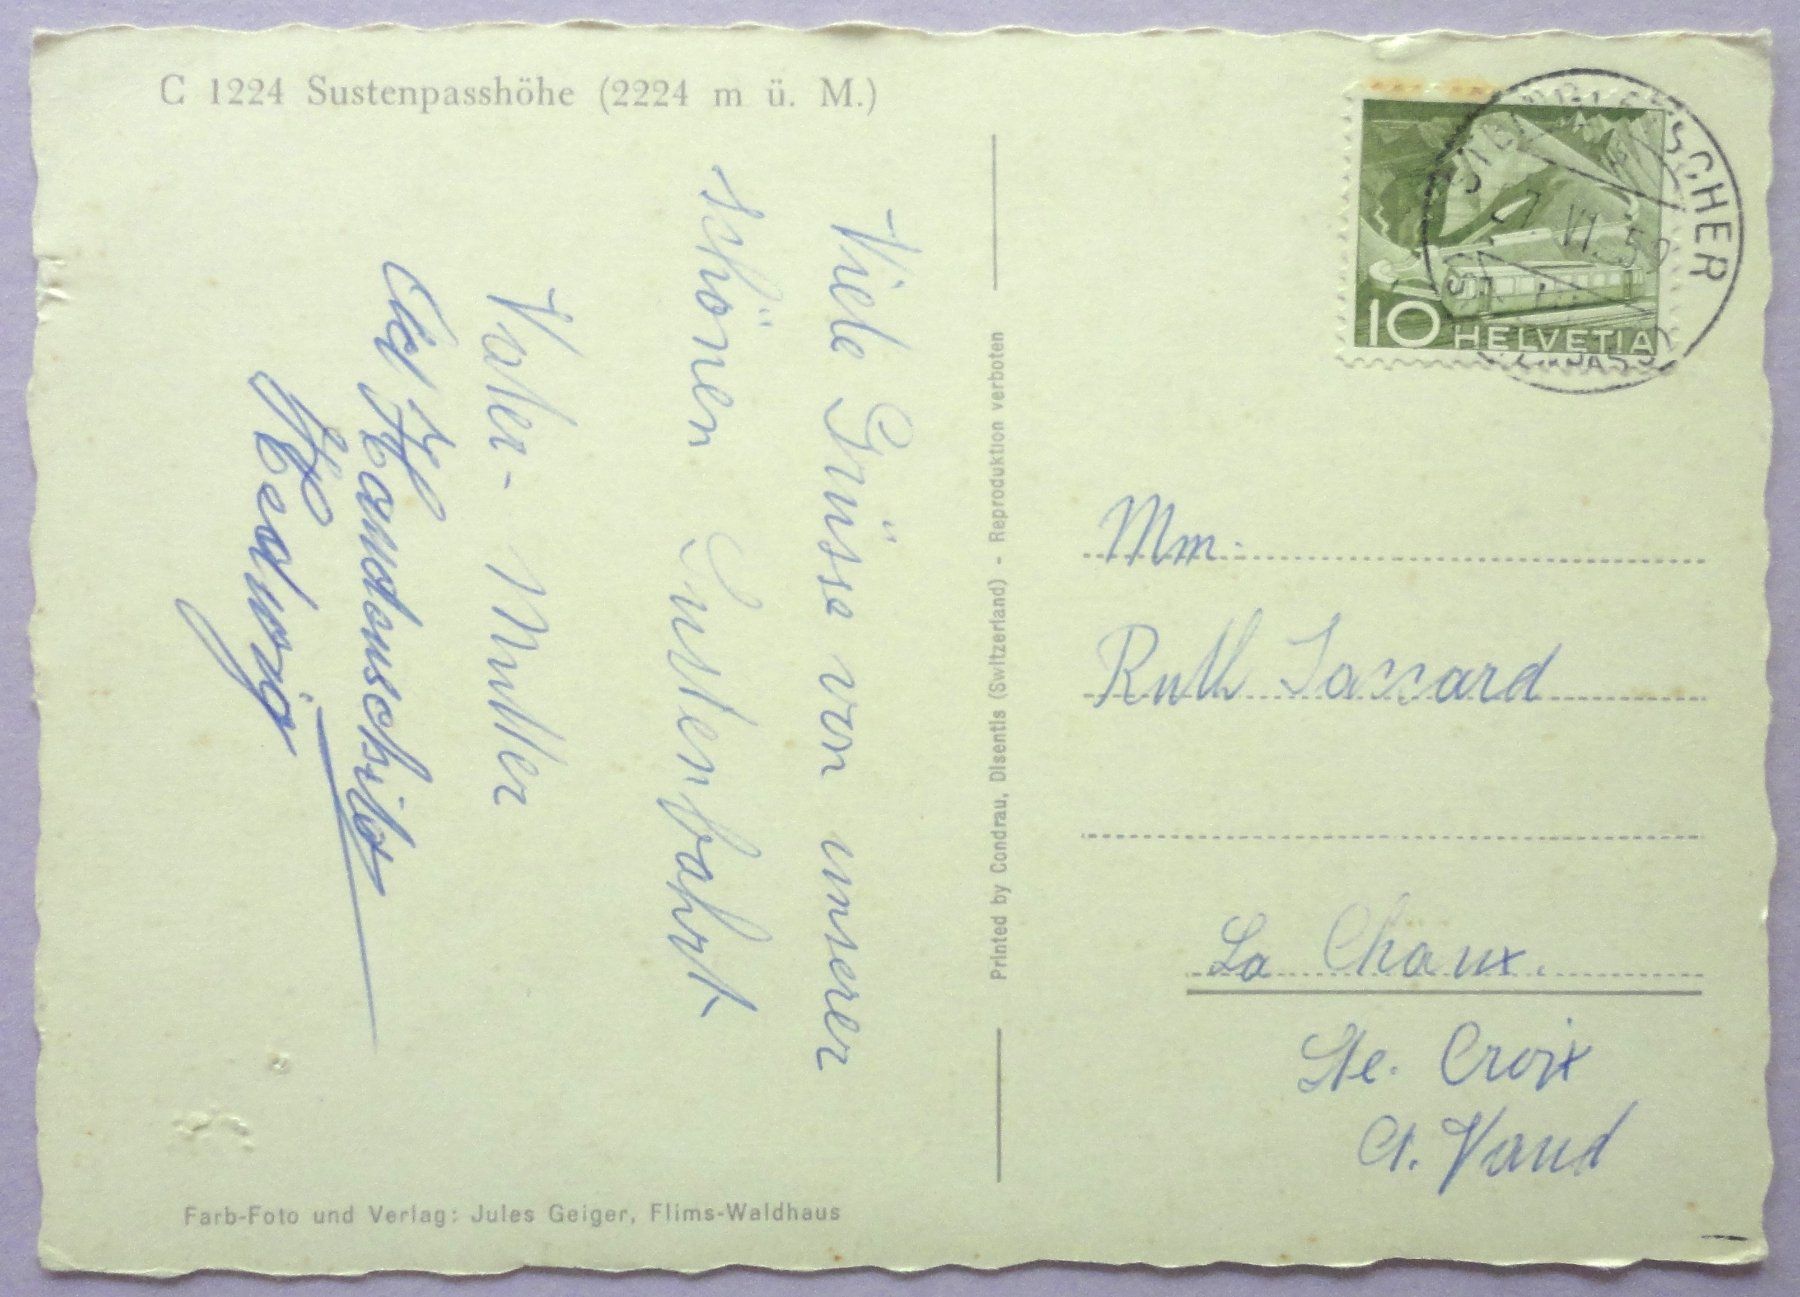 C 1224 Sustenpasshöhe (2224 m ü. M.)
Viele Grüsse von unserer
schönen Sustenfahrt
Vater - Mutter
Hedwig
Farb-Foto und Verlag: Jules Geiger, Flims-Waldhaus
Printed by Condrau, Disentis (Switzerland) - Reproduktion verboten
10 HELVETIA
SCHER
7 VI 
Mm.
Ruth Jaccard
La Chaux.
Ste. Croix
Ct. Vaud